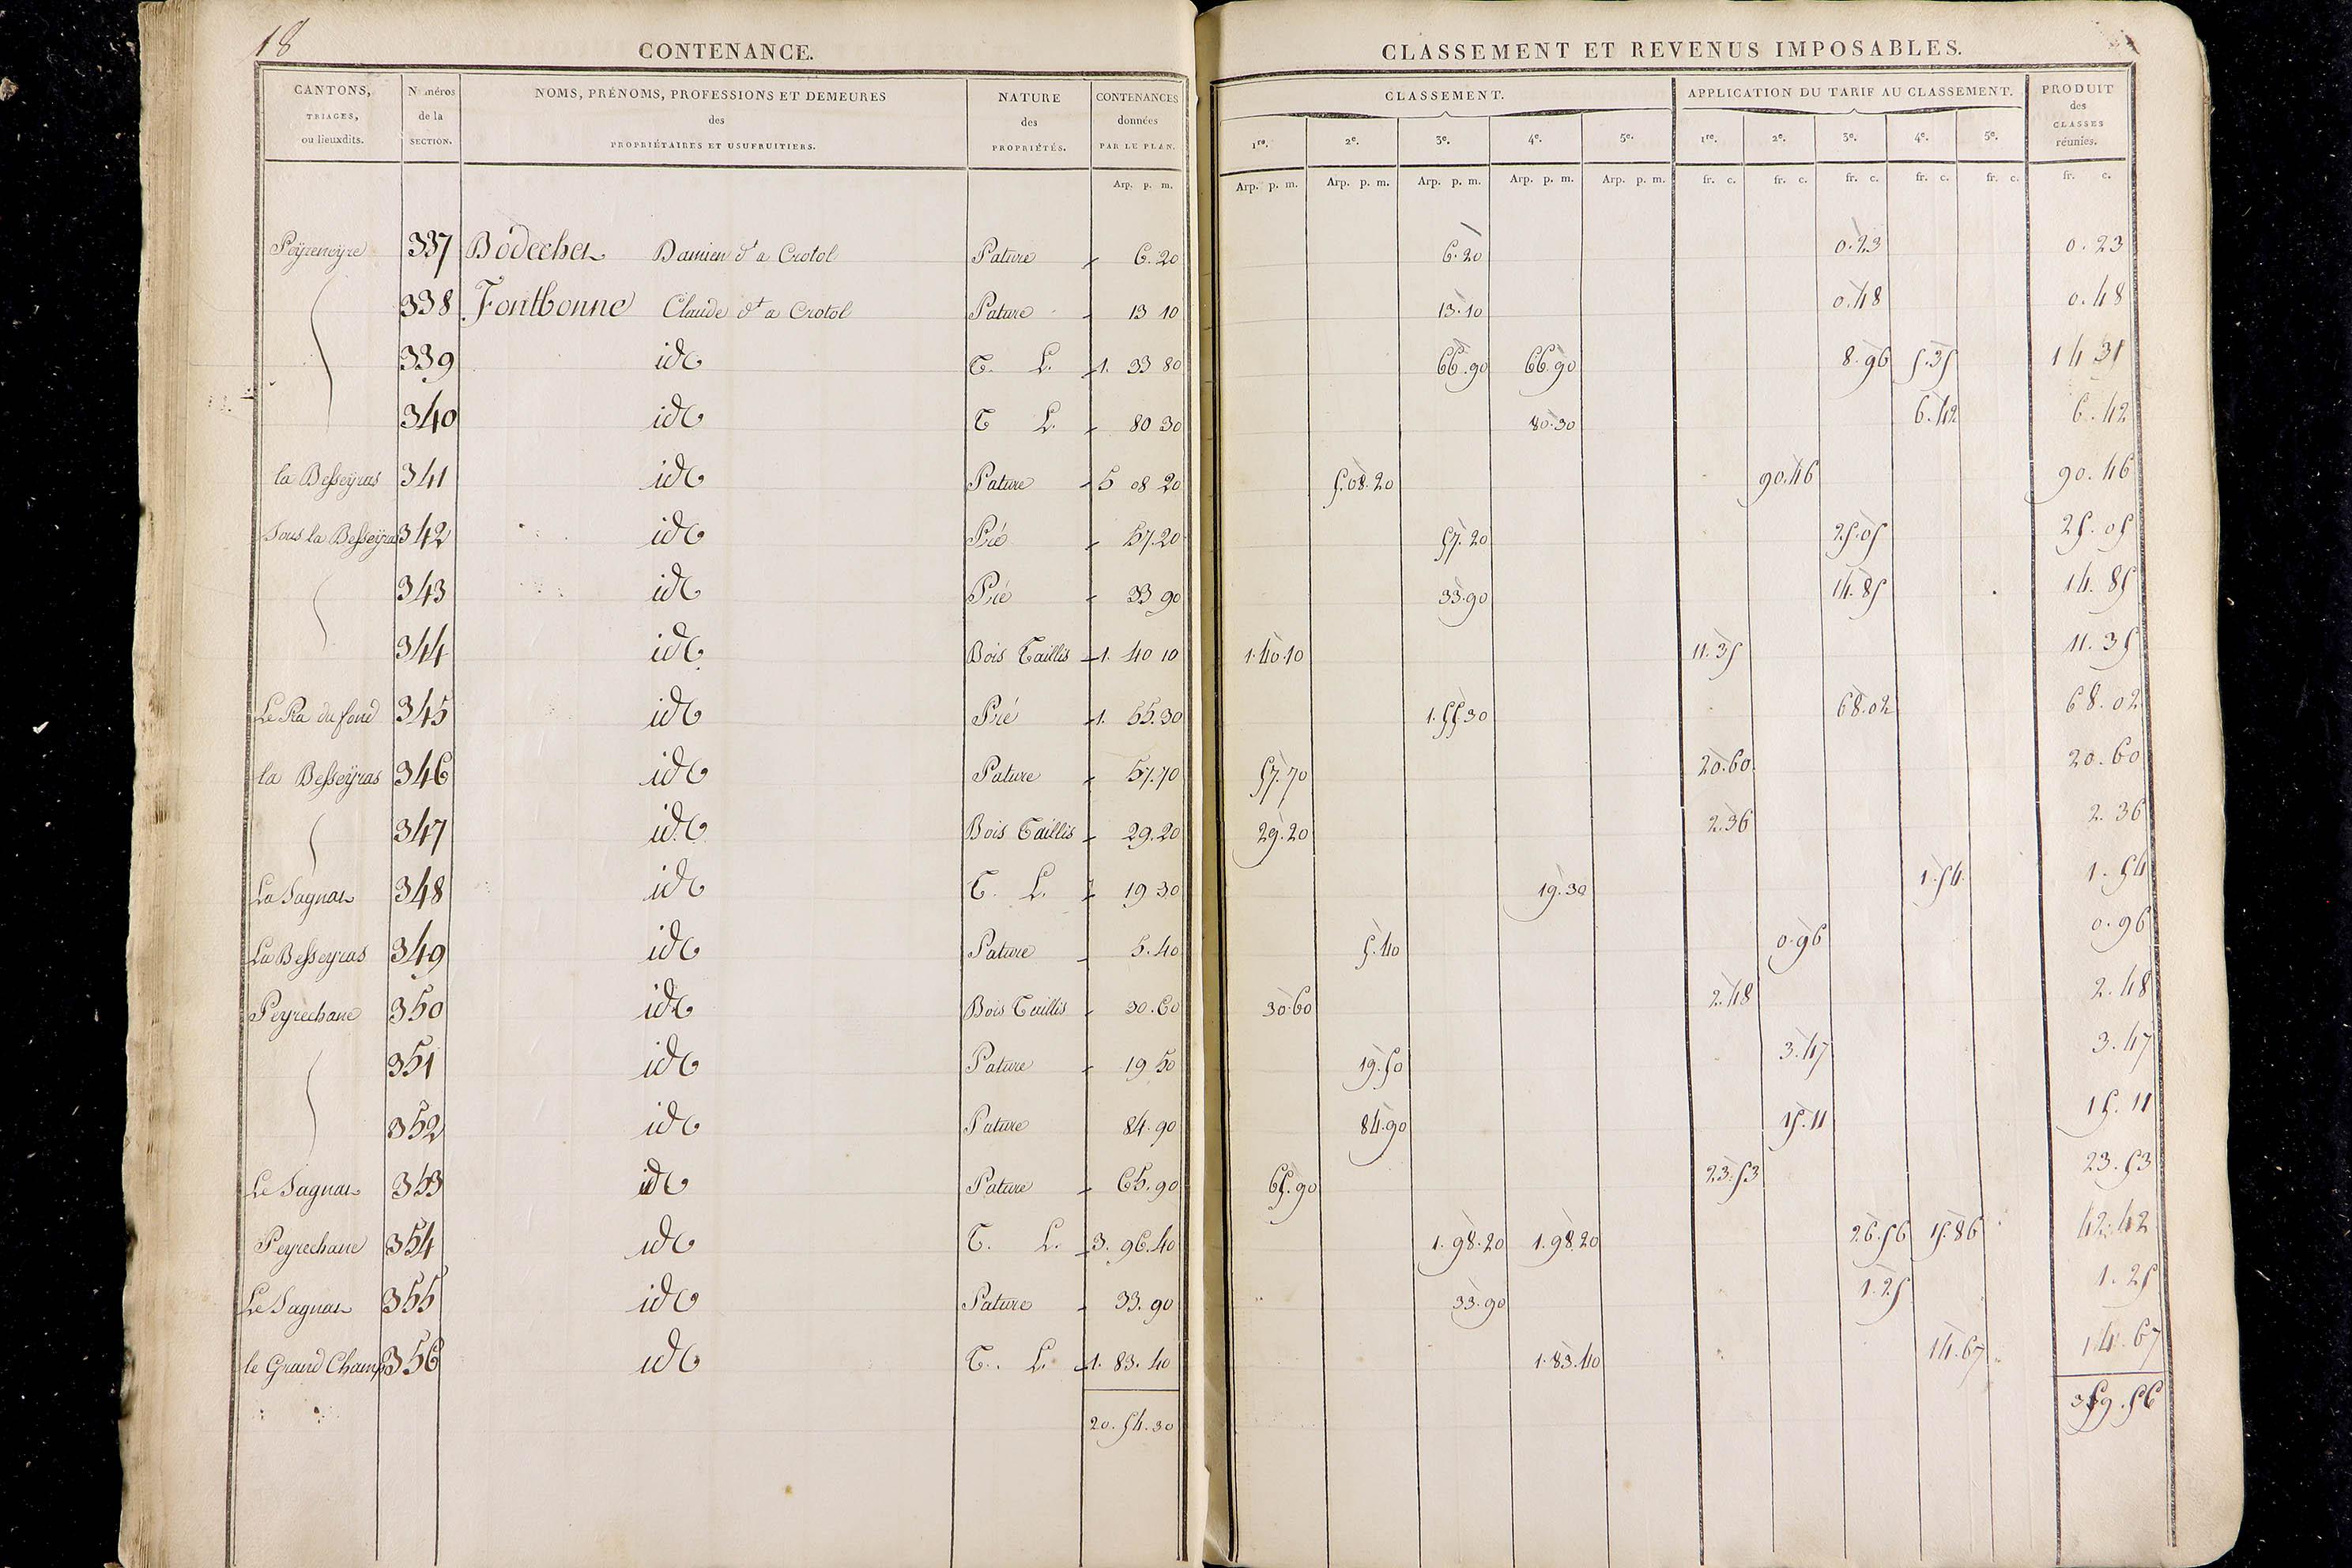 18
CONTENANCE.
CLASSEMENT ET REVENUS IMPOSABLES.
CANTONS, TRIAGES, ou lieuxdits.
Numéros de la SECTION.
NOMS, PRÉNOMS, PROFESSIONS ET DEMEURES des PROPRIÉTAIRES ET USUFRUITIERS.
NATURE des PROPRIÉTÉS.
CONTENANCES données PAR LE PLAN.
CLASSEMENT.
APPLICATION DU TARIF AU CLASSEMENT.
PRODUIT des CLASSES réunies.
1re. 2e. 3e. 4e. 5e. 1re. 2e. 3e. 4e. 5e.
Arp. p. m. Arp. p. m. Arp. p. m. Arp. p. m. Arp. p. m. Arp. p. m. fr. c. fr. c. fr. c. fr. c. fr. c. fr. c.
Peyreneyre 337 Bodecher Damien dt a Crotol Pature 6.20 6.20 0.23 0.23
338 Fontbonne Claude dt a Crotol Pature 13 10 13.10 0.48 0.48
339 id T. L. 1. 33 80 66.90 66.90 8.96 5.35 14 31
340 id T L. 80 30 80.30 6.42 6.42
la Besseÿras 341 id Pature 5 08 20 5.08.20 90.46 90.46
Sous la Besseÿras 342 id Pré 57.20 57.20 25.05 25.05
343 id Pré 33 90 33.90 14.85 14.85
344 id Bois Taillis 1. 40 10 1.40.10 11.35 11.35
Le Pra du fond 345 id Pré 1. 55.30 1.55.30 68.02 68.02
la Besseÿras 346 id Pature 57.70 57.70 20.60 20.60
347 id Bois Taillis 29.20 29.20 2.36 2.36
La Sagnas 348 id T. L. 19 30 19.30 1.54 1.54
La Besseyras 349 id Pature 5.40 5.40 0.96 0.96
Peyrechane 350 id Bois Taillis 30.60 30.60 2.48 2.48
351 id Pature 19 50 19.50 3.47 3.47
352 id Pature 84.90 84.90 15.11 15.11
Le Sagnas 353 id Pature 65.90 65.90 23.53 23.53
Peyrechane 354 id T. L. 3. 96.40 1.98.20 1.98.20 26.56 15.86 42.42
Le Sagnas 355 id Pature 33.90 33.90 1.25 1.25
le Grand Champ 356 id T. L. 1. 83.40 1.83.40 14.67 14.67
20.54.30 359.56